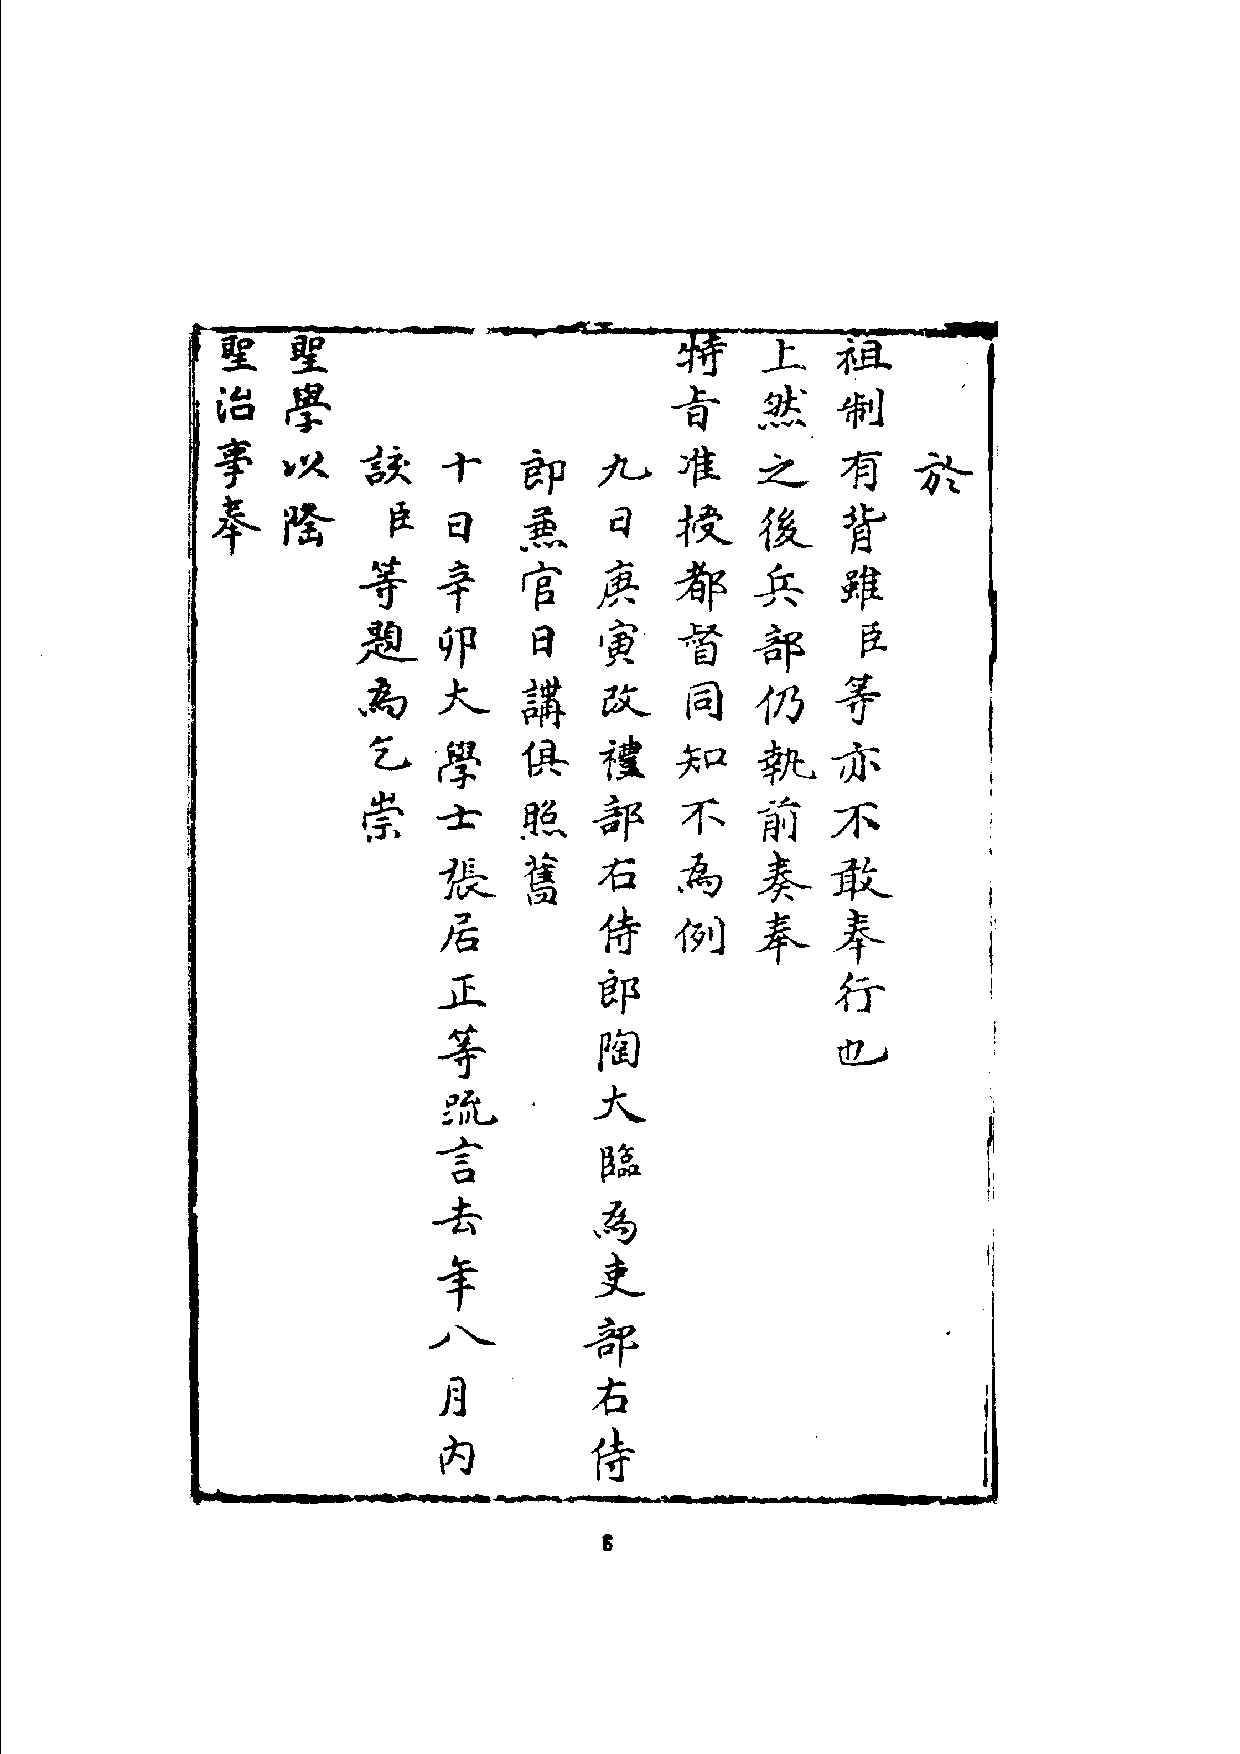 於
祖制有背雖臣等亦不敢奉行也
上然之後兵部仍執前奏奉
特旨准授都督同知不為例
九日庚寅改禮部右侍郎陶大臨為吏部右侍
郎兼官日講俱照舊
十日辛卯大學士張居正等疏言去年八月內
該臣等題為乞崇
聖學以隆
聖治事奉
6